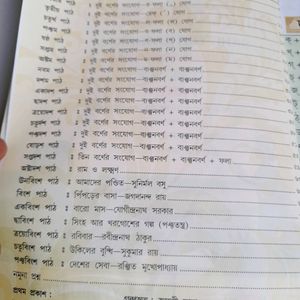 তৃতীয় পাঠ : দুই বর্ণের সংযোগ-র-ফলা (্র) যোগ
চতুর্থ পাঠ : দুই বর্ণের সংযোগ-রেফ (র্) যোগ
পঞ্চম পাঠ : দুই বর্ণের সংযোগ
ষষ্ঠ পাঠ : দুই বর্ণের সংযোগ
সপ্তম পাঠ : দুই বর্ণের সংযোগ
অষ্টম পাঠ : দুই বর্ণের সংযোগ
নবম পাঠ : দুই বর্ণের সংযোগ—ব্যঞ্জনবর্ণ + ব্যঞ্জনবর্ণ
দশম পাঠ : দুই বর্ণের সংযোগ—ব্যঞ্জনবর্ণ + ব্যঞ্জনবর্ণ
একাদশ পাঠ : দুই বর্ণের সংযোগ—ব্যঞ্জনবর্ণ + ব্যঞ্জনবর্ণ
দ্বাদশ পাঠ : দুই বর্ণের সংযোগ—ব্যঞ্জনবর্ণ + ব্যঞ্জনবর্ণ
ত্রয়োদশ পাঠ : দুই বর্ণের সংযোগ—ব্যঞ্জনবর্ণ + ব্যঞ্জনবর্ণ
চতুর্দশ পাঠ : দুই বর্ণের সংযোগ—ব্যঞ্জনবর্ণ + ব্যঞ্জনবর্ণ
পঞ্চদশ পাঠ : দুই বর্ণের সংযোগ—ব্যঞ্জনবর্ণ + ব্যঞ্জনবর্ণ
ষোড়শ পাঠ : দুই বর্ণের সংযোগ—ব্যঞ্জনবর্ণ + ব্যঞ্জনবর্ণ
সপ্তদশ পাঠ : তিন বর্ণের সংযোগ—ব্যঞ্জনবর্ণ + ব্যঞ্জনবর্ণ + ফলা
অষ্টাদশ পাঠ : রাম ও লক্ষ্মণ
ঊনবিংশ পাঠ : আমাদের পণ্ডিত—সুনির্মল বসু
বিংশ পাঠ : পিঁপড়ের বাসা—জগদানন্দ রায়
একবিংশ পাঠ : বারো মাস—যোগীন্দ্রনাথ সরকার
দ্বাবিংশ পাঠ : সিংহ আর খরগোশের গল্প (পঞ্চতন্ত্র)
ত্রয়োবিংশ পাঠ : রবিবার—রবীন্দ্রনাথ ঠাকুর
চতুর্বিংশ পাঠ : উকিলের বুদ্ধি—সুকুমার রায়
পঞ্চবিংশ পাঠ : দেশের সেবা—রঞ্জিত মুখোপাধ্যায়
নমুনা প্রশ্ন
প্রথম প্রকাশ :